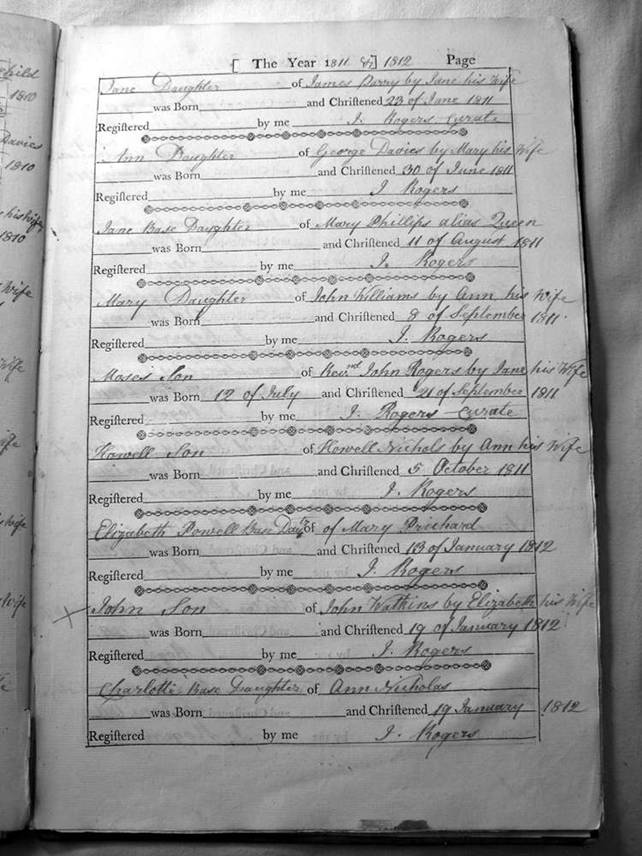 [ The Year 1811 &] 1812 Page
Jane Daughter of James Parry by Jane his Wife
was Born and Chriſtened 23 of June 1811
Regiſtered by me J. Rogers Curate
Ann Daughter of George Davies by Mary his Wife
was Born and Chriſtened 30 of June 1811
Regiſtered by me J Rogers
Jane Base Daughter of Mary Phillips alias Queen
was Born and Chriſtened 11 of August 1811
Regiſtered by me J. Rogers
Mary Daughter of John Williams by Ann his Wife
was Born and Chriſtened 8 of September 1811.
Regiſtered by me J. Rogers
Moses Son of Revnd John Rogers by Jane his Wife
was Born 12 of July and Chriſtened 21 of September 1811
Regiſtered by me J. Rogers Curate
Howell Son of Howell Nichols by Ann his Wife
was Born and Chriſtened 5 October 1811
Regiſtered by me J. Rogers
Elizabeth Powell Base Daugr of of Mary Prichard
was Born and Chriſtened 13 of January 1812
Regiſtered by me J. Rogers
John Son of John Watkins by Elizabeth his Wife
was Born and Chriſtened 19 of January 1812
Regiſtered by me J. Rogers
Charlotte Base Daughter of Ann Nicholas
was Born and Chriſtened 19 January 1812
Regiſtered by me J. Rogers